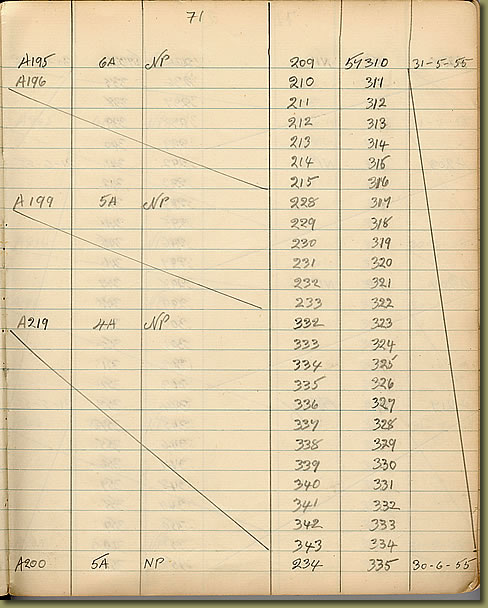 71
A195 6A NP 209 57310 31-5-55
A196 210 311
211 312
212 313
213 314
214 315
215 316
A199 5A NP 228 317
229 318
230 319
231 320
232 321
233 322
A219 4A NP 332 323
333 324
334 325
335 326
336 327
337 328
338 329
339 330
340 331
341 332
342 333
343 334
A200 5A NP 234 335 30-6-55